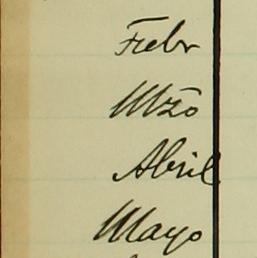 Febr
Mzo
Abril
Mayo